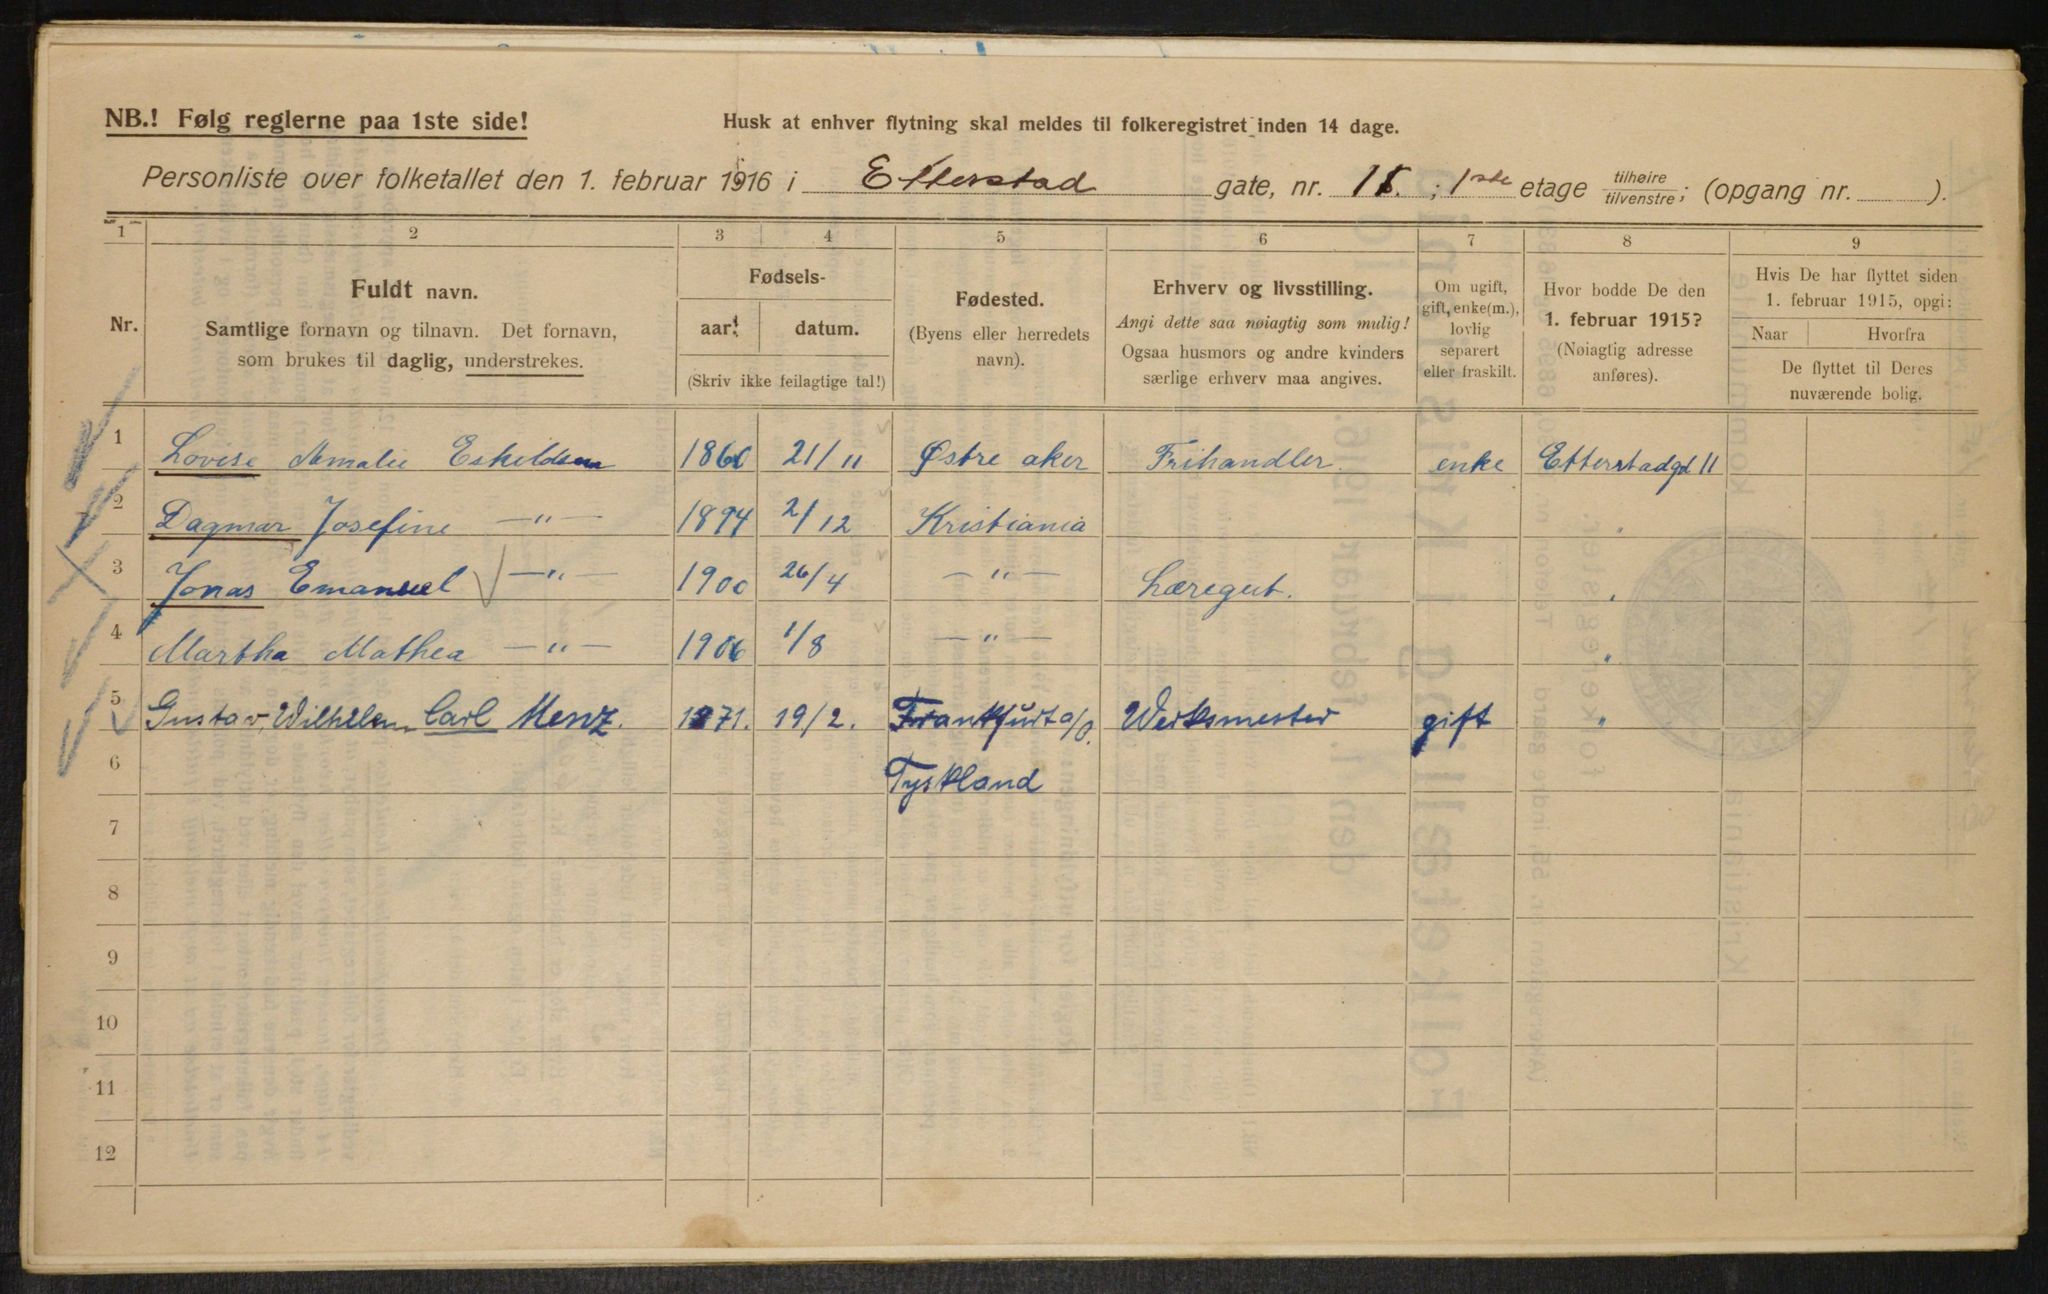 NB.! Følg reglerne paa 1ste side!
Husk at enhver flytning skal meldes til folkeregistret inden 14 dage.
Personliste over folketallet den 1. februar 1916 i Etterstad gate, nr. 11. ; 1ste etage tilhøire/tilvenstre; (opgang nr. ).
1 2 3 4 5 6 7 8 9
Nr.
Fuldt navn.
Samtlige fornavn og tilnavn. Det fornavn,
som brukes til daglig, understrekes.
Fødsels-
aar! datum.
(Skriv ikke feilagtige tal!)
Fødested.
(Byens eller herredets
navn).
Erhverv og livsstilling.
Angi dette saa nøiagtig som mulig!
Ogsaa husmors og andre kvinders
særlige erhverv maa angives.
Om ugift,
gift, enke(m.),
lovlig
separert
eller fraskilt.
Hvor bodde De den
1. februar 1915?
(Nøiagtig adresse
anføres).
Hvis De har flyttet siden
1. februar 1915, opgi:
Naar Hvorfra
De flyttet til Deres
nuværende bolig.
1 Lovise Amalie Eskildsen 1860 21/11 Østre aker Frihandler. enke Etterstadgd 11
2 Dagmar Josefine —"— 1894 2/12 Kristiania "
3 Jonas Emanuel —"— 1900 26/4 —"— Læregut. "
4 Martha Mathea —"— 1906 1/8 —"— "
5 Gustav, Wilhelm Carl Menz. 1871. 19/2. Frankfurt a/O. Werksmester gift "
6 Tyskland
7
8
9
10
11
12